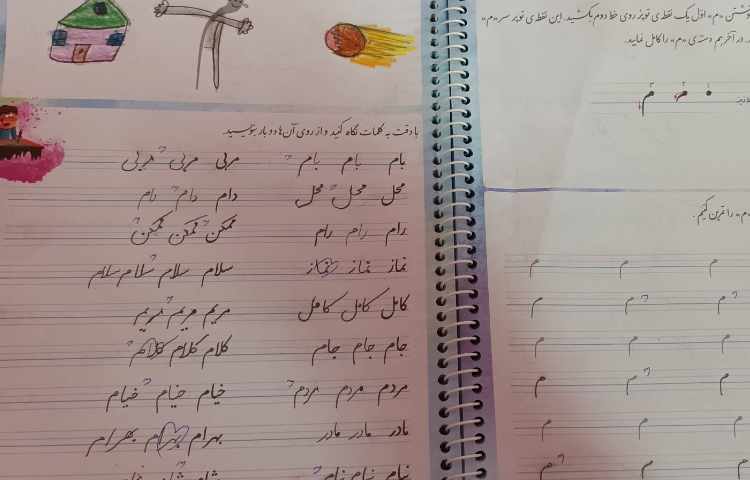 با دقت به کلمات نگاه کنید و از روی آن‌ها دوبار بنویسید.
بام بام بام مربی مربی مربی
محل محل محل دام دام دام
رام رام رام کمکن کمکن کمکن
نماز نماز نماز سلام سلام سلام سلام
کامل کامل کامل مریم مریم مریم
جام جام جام کلام کلام کلام
مردم مردم مردم خیام خیام خیام
مادر مادر مادر بهرام بهرام بهرام
نیام نیام نیام
نوشتن «م» اول یک نقطه‌ی قوبر روی خط دوم بکشید. این نقطه‌ی قوبر سر «م»
در آخر هم دسته‌ی «م» را کامل نمایید.
م م
«م» را تمرین کنیم.
م م م
م م م
م م م
م م م
م م م
م م م